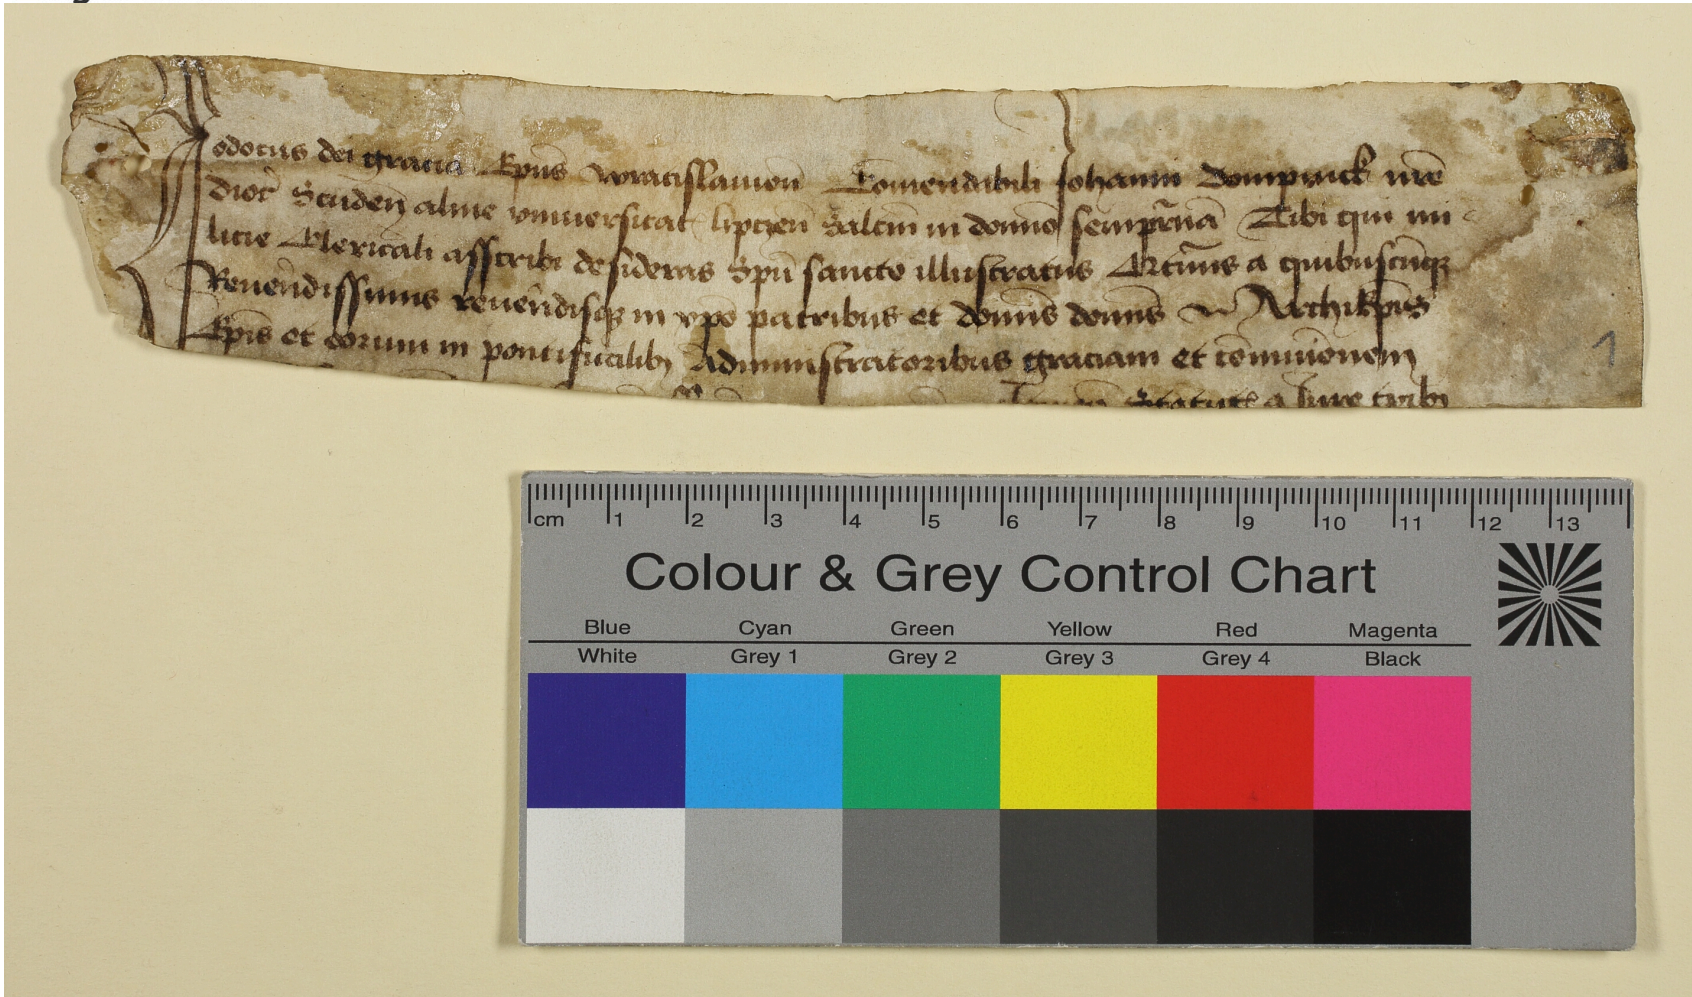 Jodocus dei gracia Ep̄us wratislauieñ Comendabili Johanni Dompnick nr̄e
dioc̄ Studeñ alme vniuersitat̄ lipczeñ Salt̄m in domino sempit̄nā Tibi qui mi
licie Clericali asscribi desideras Sp̄u sancto illustratus a quibuscūqȝ
Reuerēdissimis reuerēdisqȝ in xp̄o patribus et dominis dominis Archiep̄is
Ep̄is et eorum in pontificalibȝ Administratoribus graciam et cōmunionem
a Jure
1
cm 1 2 3 4 5 6 7 8 9 10 11 12 13
Colour & Grey Control Chart
Blue Cyan Green Yellow Red Magenta
White Grey 1 Grey 2 Grey 3 Grey 4 Black